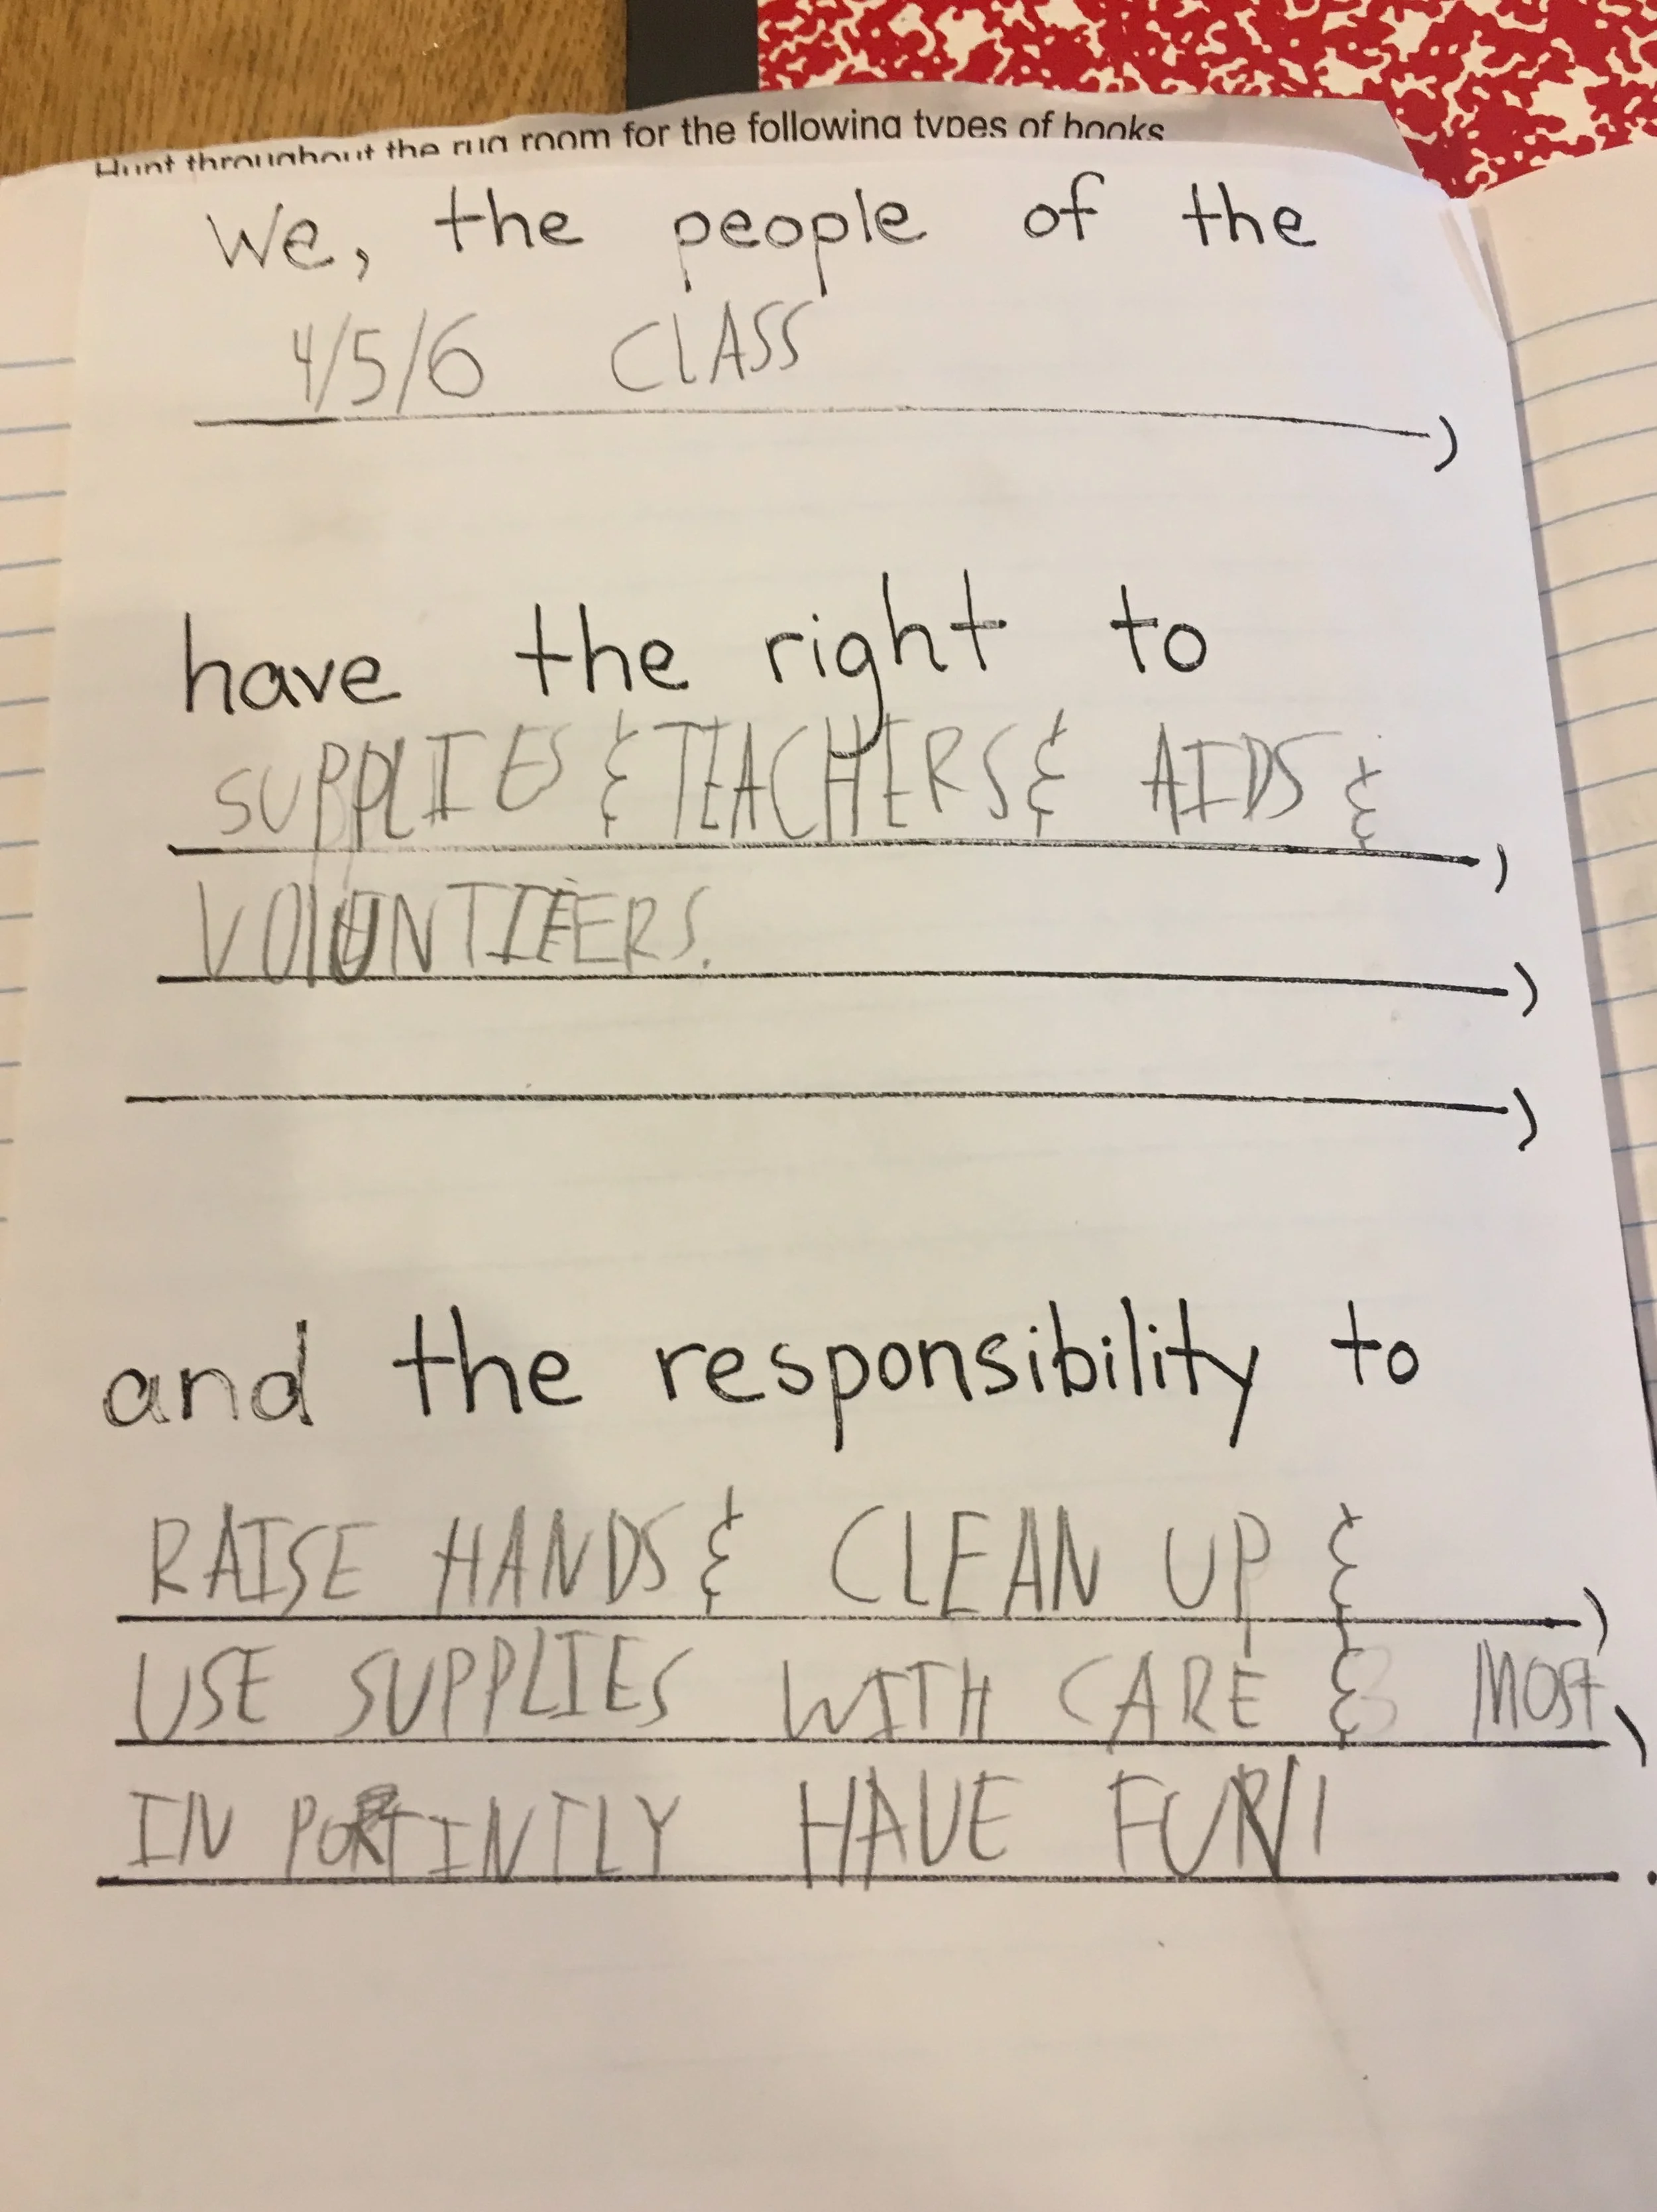 Hunt throughout the rug room for the following types of books
We, the people of the
4/5/6 CLASS ,
have the right to
SUPPLIES & TEACHERS & AIDS & ,
VOLUNTIEERS. ,
,
and the responsibility to
RAISE HANDS & CLEAN UP & ,
USE SUPPLIES WITH CARE & MOST ,
IN PORTINTLY HAVE FUN! .